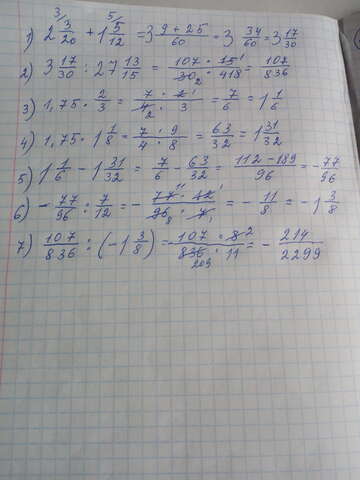 1) 2 3/20 + 1 5/12 = 3 (9 + 25)/60 = 3 34/60 = 3 17/30
2) 3 17/30 : 27 13/15 = (107 · 15)/(30 · 418) = 107/836
3) 1,75 · 2/3 = (7 · 2)/(4 · 3) = 7/6 = 1 1/6
4) 1,75 · 1 1/8 = (7 · 9)/(4 · 8) = 63/32 = 1 31/32
5) 1 1/6 - 1 31/32 = 7/6 - 63/32 = (112 - 189)/96 = - 77/96
6) - 77/96 : 7/12 = - (77 · 12)/(96 · 7) = - 11/8 = - 1 3/8
7) 107/836 : (- 1 3/8) = - (107 · 8)/(836 · 11) = - 214/2299